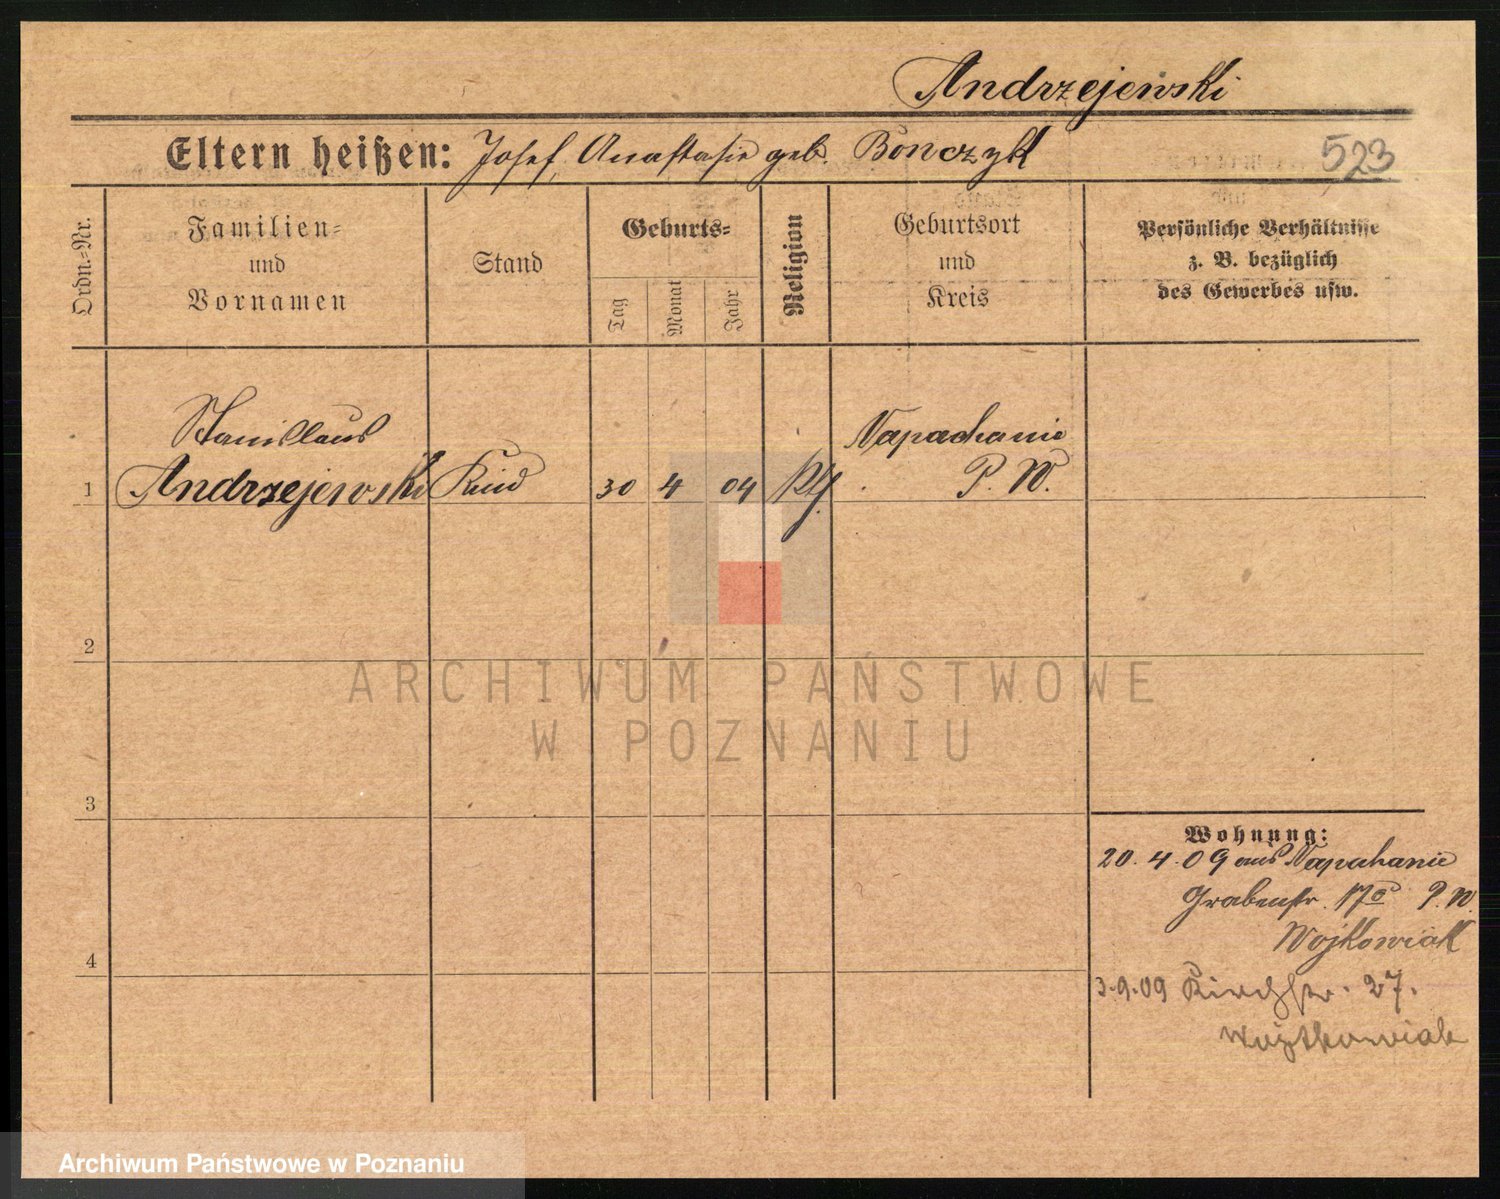 Andrzejewski
Eltern heißen: Josef, Anastasie geb. Bonczyk
523
Ordn.-Nr.
Familien-
und
Vornamen
Stand
Geburts-
Tag
Monat
Jahr
Religion
Geburtsort
und
Kreis
Persönliche Verhältnisse
z. B. bezüglich
des Gewerbes usw.
Stanislaus
Napachanie
1 Andrzejewski Kind 30 4 04 kth. P. W.
2
ARCHIWUM PAŃSTWOWE
W POZNANIU
3
Wohnung:
20.4.09 aus Napachanie
Grabenstr. 17 P. W.
Wojtkowiak
4
3.9.09 Kirchstr. 27.
Wojtkowiak
Archiwum Państwowe w Poznaniu